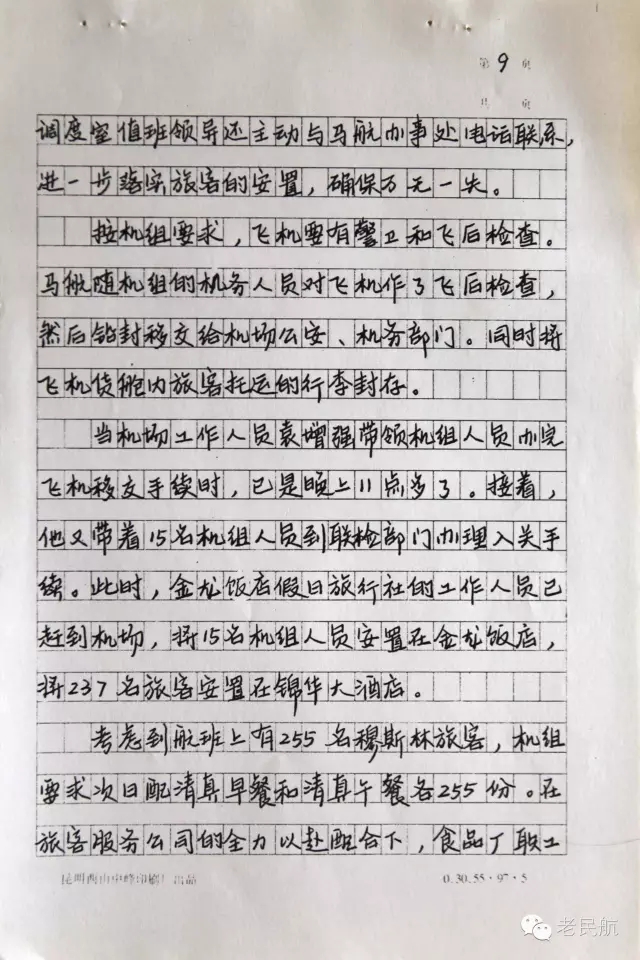 第9页
共 页
调度室值班领导还主动与马航办事处电话联系,
进一步落实旅客的安置，确保万无一失。
按机组要求，飞机要有警卫和飞后检查。
马航随机组的机务人员对飞机作了飞后检查,
然后铅封移交给机场公安、机务部门。同时将
飞机货舱内旅客托运的行李封存。
当机场工作人员袁增强带领机组人员办完
飞机移交手续时，已是晚上11点多了。接着,
他又带着15名机组人员到联检部门办理入关手
续。此时，金龙饭店假日旅行社的工作人员已
赶到机场，将15名机组人员安置在金龙饭店，
将237名旅客安置在锦华大酒店。
考虑到航班上有255名穆斯林旅客，机组
要求次日配清真早餐和清真午餐各255份。在
旅客服务公司的全力以赴配合下，食品厂职工
昆明西山中峰印刷厂出品 0.30.55·97·5
老民航